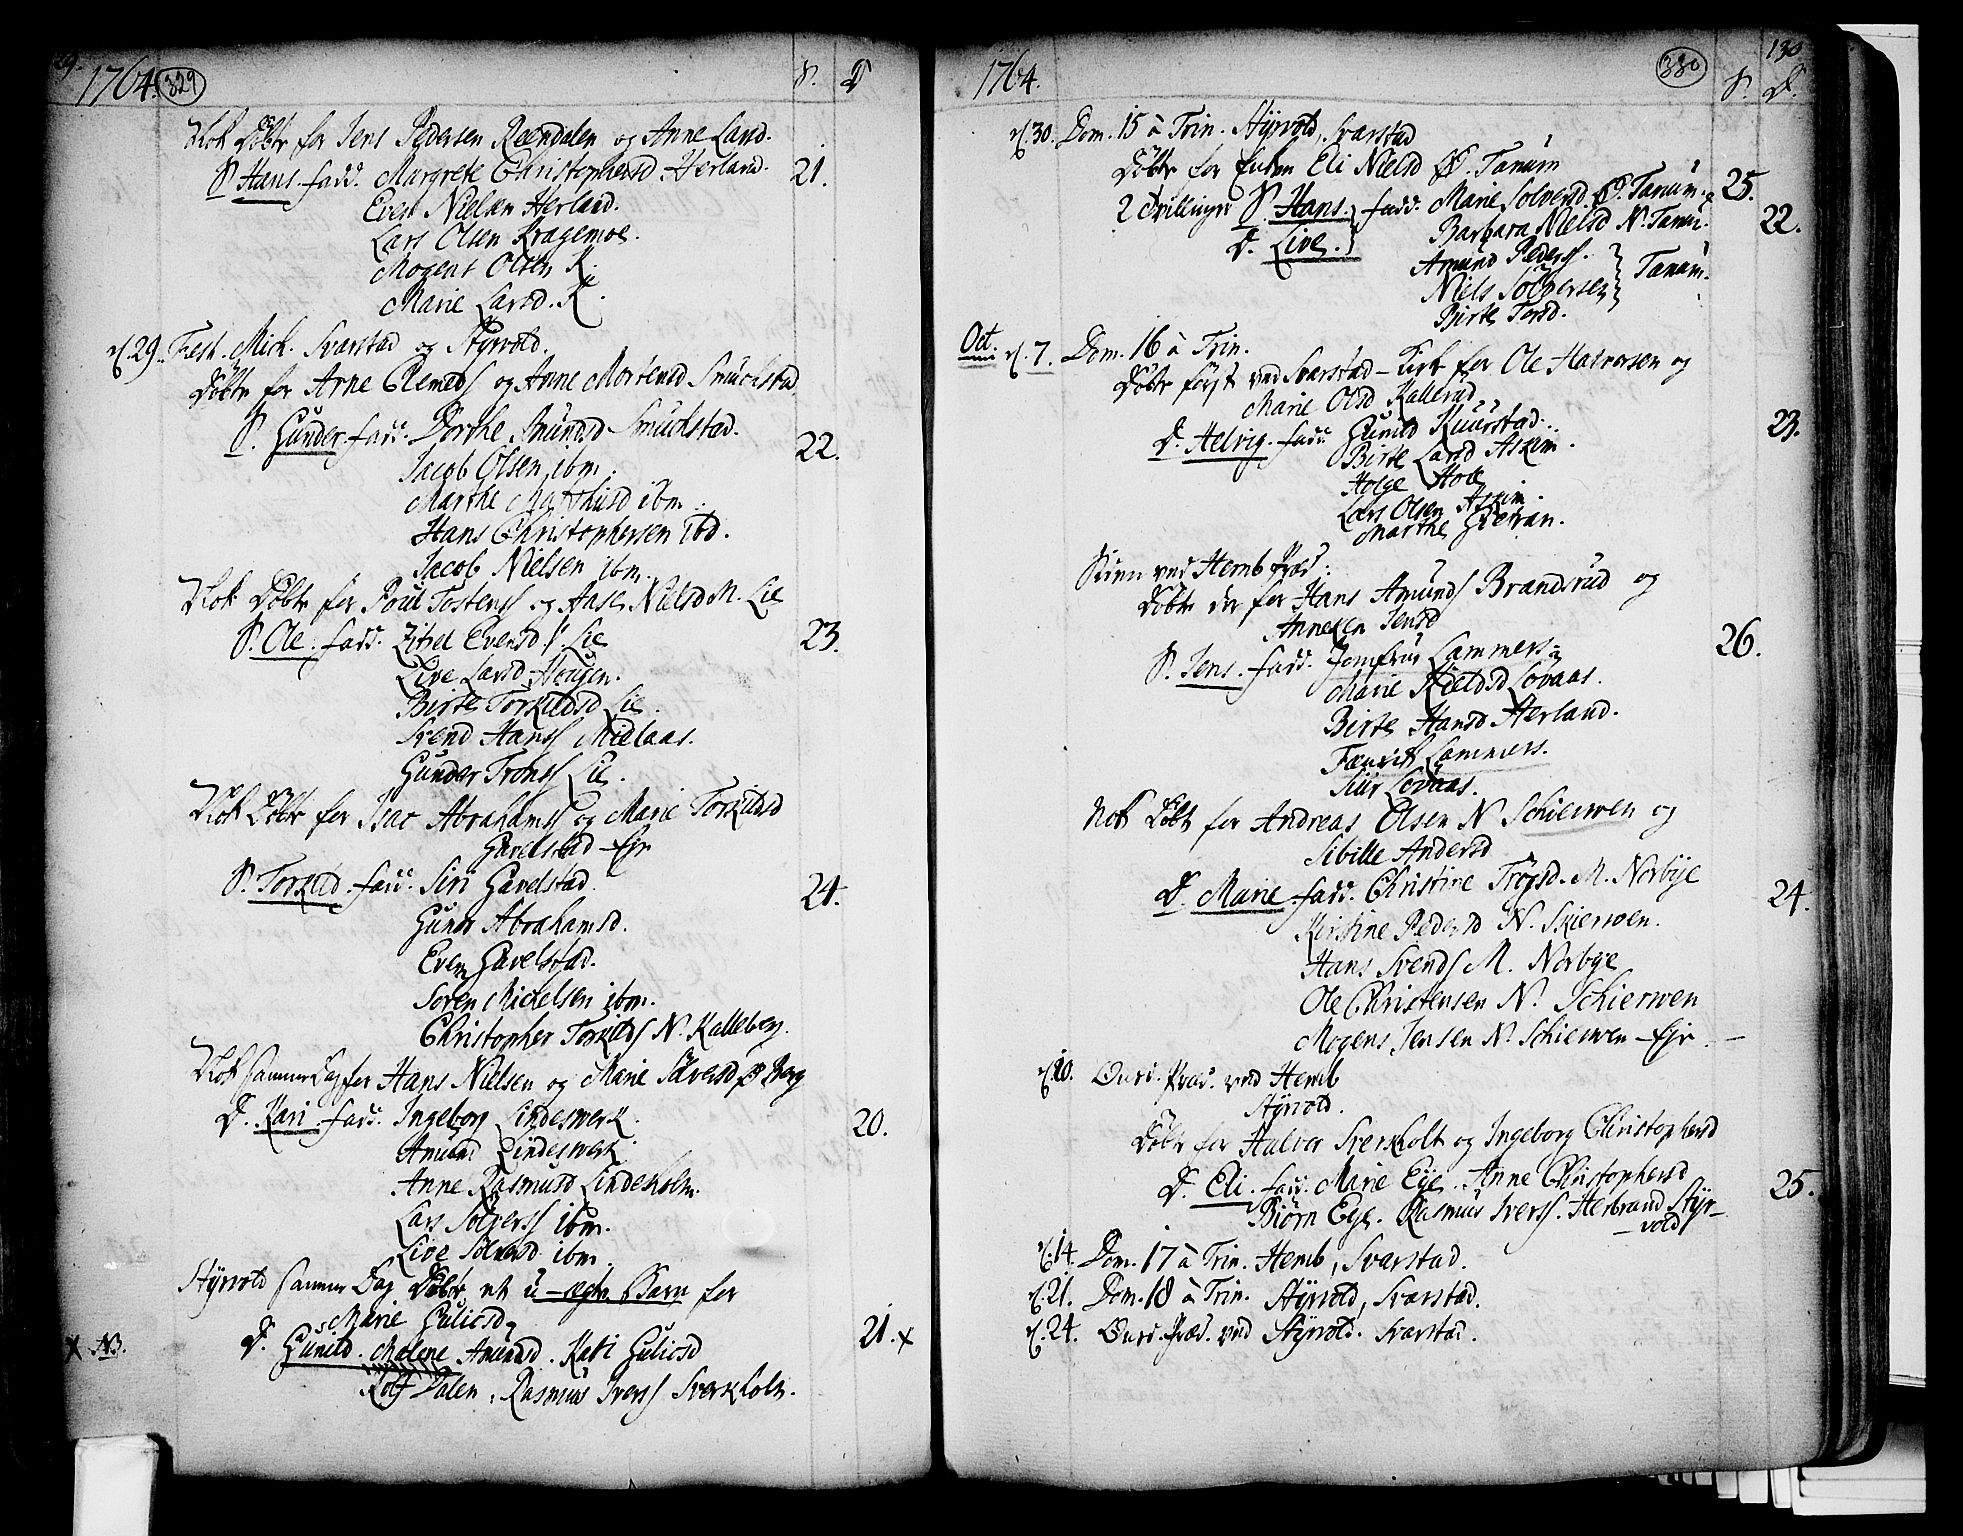 1764. 329
S. D
Nok Döbte for Jens Pedersen Reendalen og Anne Larsd.
S. Hans. fadd. Margrete Christophersd. Herland. 21.
Even Nielsen Herland.
Lars Olsen Kragemoe.
Mogens Olsen K.
Marie Larsd. K.
d. 29. Fest. Mich. Svarstad og Styrvold.
Döbte for Arne Clemeds og Anne Mortensd Smuchstad
S. Gunder fadd. Dorthe Amundsd Smuchstad. 22.
Jacob Olsen ibm.
Marthe Mathiisd ibm.
Hans Christophersen ibd.
Jacob Nielsen ibm.
Nok Döbte for Poul Tostens og Aase Nielsd M. Lie
S. Ole. fadd. Zibel Evensd S. Lie 23.
Live Larsd. Hougen.
Birte Torkildsd Lie.
Svend Hans Mielaas.
Gunder Trons Lie.
Nok Döbte for Isac Abrahams og Marie Torkildsd
Gavelstad Eje
S. Torkild. fadd. Siri Gavelstad. 24.
Guner Abrahamsd.
Even Gavelstad.
Soren Michelsen ibm.
Christopher Torkilds N. Kalleberg.
Nok samme Dag for Hans Nielsen og Marie Sölversd Ø Berg
D. Kari. fadd. Ingeborg Lindeswerk. 20.
Amund Lindeswerk
Anne Rasmusd Lindeholm.
Lars Solvers ibm.
Live Solversd ibm.
Styrvold samme Dag Döbte et u-ægte Barn for
Marie Gulicsd
x NB. D. Gunild. Malene Amundsd. Kari Gulicsd 21. x
Rolf Dalen. Rasmus Ivers Sverkholt.
1764. 330 130
S. D.
d. 30. Dom. 15 à Trin. Styrvold, Svarstad
Döbte for Enken Eli Nielsd Ø. Tanum
2 Tvillinger S. Hans. fadd. Marie Solversd. Ø. Tanum. 25.
D. Live. Barbara Nielsd N. Tanum. 22.
Amund Peders.
Niels Sölversen Tanum.
Birte Torsd.
Oct. d. 7. Dom. 16 à Trin.
Döbte först ved Svarstad-Kirke for Ole Halvorsen og
Marie Olsd Kallerud
D. Helvig. fadd. Gunild Kuurstad. 23.
Birte Larsd Askim.
Holge Hole
Lars Olsen Askim.
Marthe Gretran.
Siden ved Hemb Præd.
Döbte der for Hans Amunds Brandsrud og
Anneken Jensd
S. Jens. fadd. Jomfrue Lammers 26.
Marie Kieldsd Lövaas.
Birte Hansd Herland.
Fenrik Lammers.
Siur Lövaas.
Nok Döbte for Andreas Olsen N Schierwen og
Sibille Andersd
D. Marie. fadd. Christine Trogsd. M. Norbÿe 24.
Kirstine Pedersd N. Skierwen.
Hans Svends M. Norbye
Ole Christensen N. Schierwen
Mogens Jensen N. Schierwen Eje.
d. 10. Onsd. Præd. ved Hemb
Styrvold.
Döbte for Halvor Sverkholt og Ingeborg Christophersd
D. Eli. fadd. Marie Ege. Anne Christophersd 25.
Biörn Ege. Rasmus Ivers. Herbrand Styr-
vold
d. 14. Dom. 17 à Trin. Hemb, Svarstad.
d. 21. Dom. 18 à Trin. Styrvold, Svarstad.
d. 24. Onsd. Præd. ved Styrvold. Svarstad.